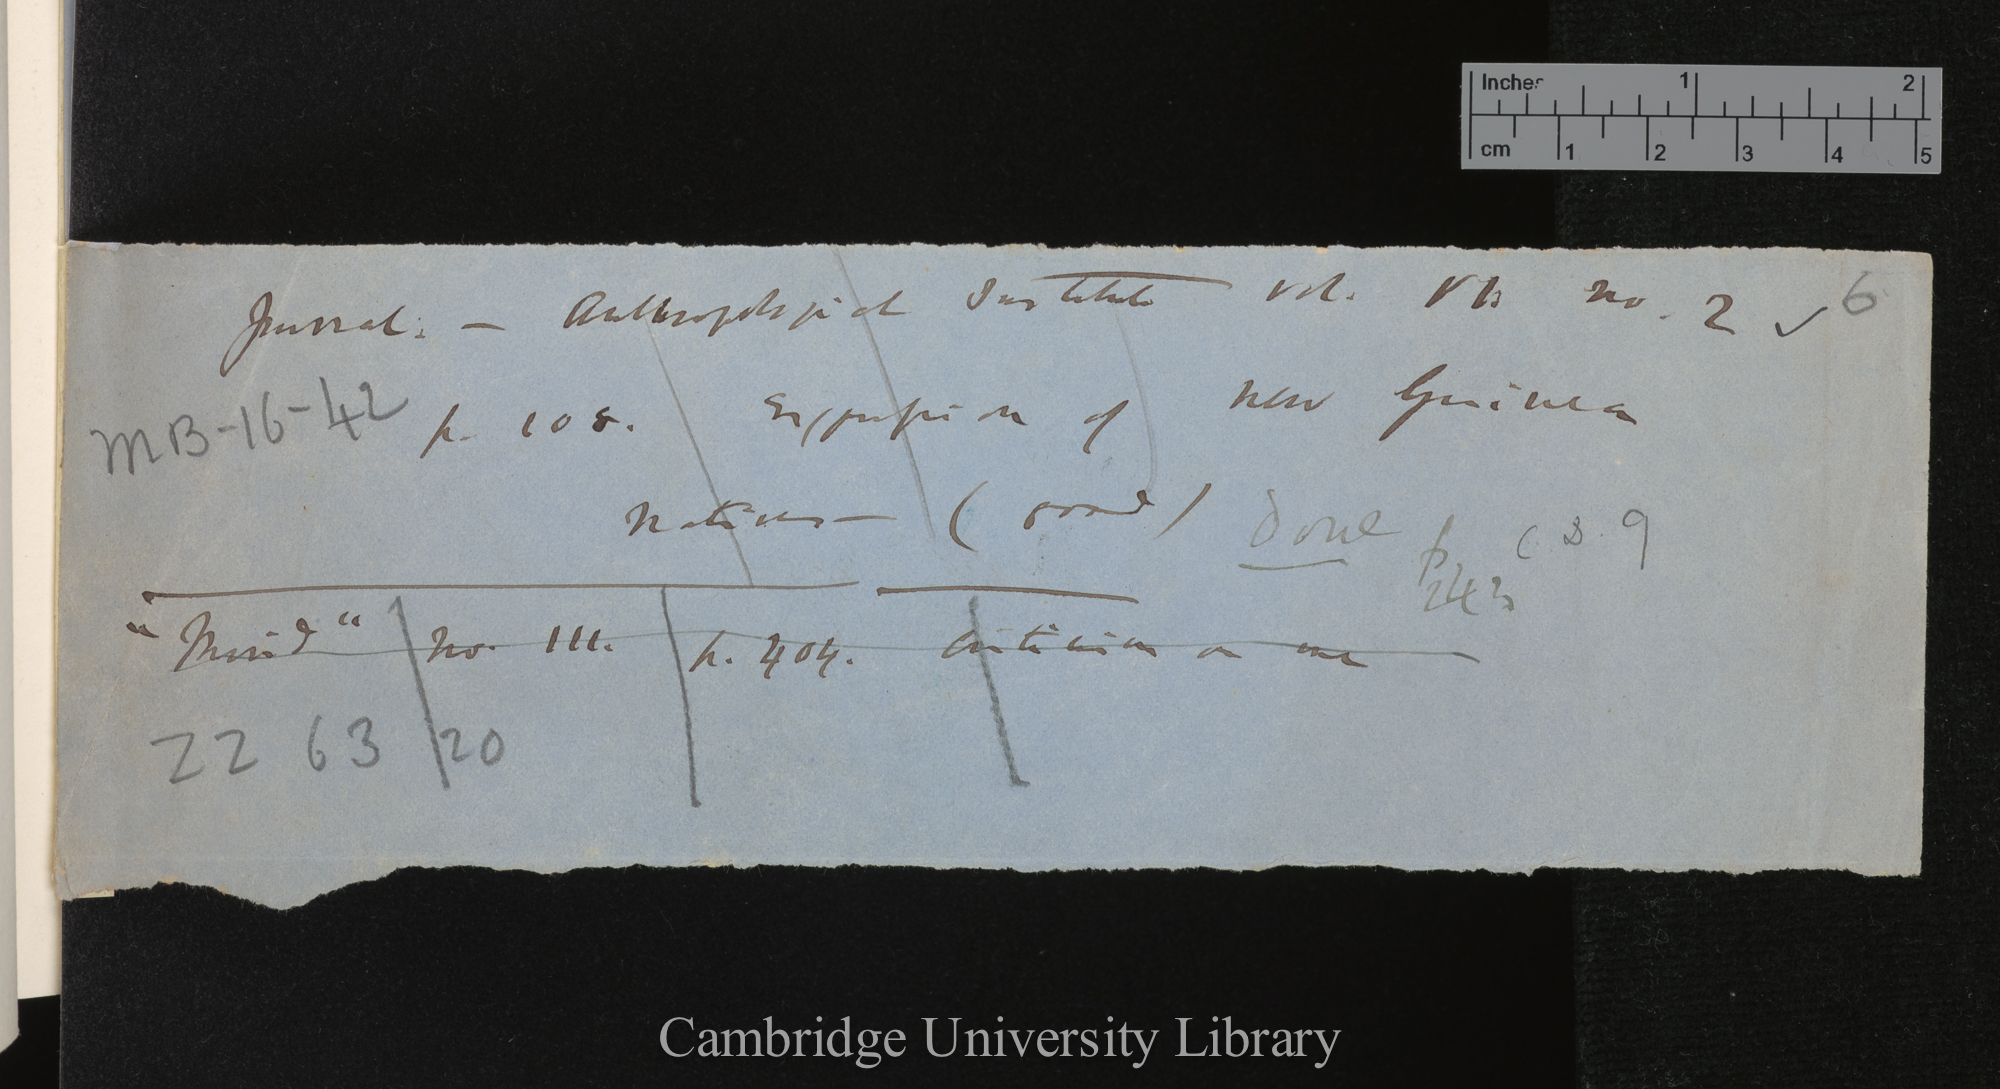 Inches 1 2
cm 1 2 3 4 5
Journal. — Anthropological Institute Vol. VI no. 2 ✓ 6
MB-16-42 p. 108. Expression of New Guinea
natives — (good) Done p 243
"Mind" No. III. p. 404. Criticism on me
22 63 20
Cambridge University Library